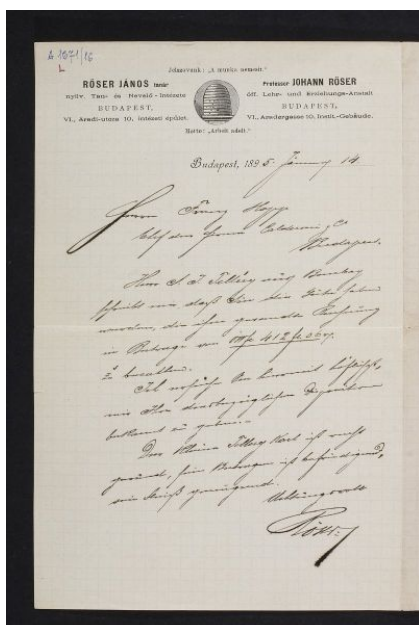 A 1871/16
L
Jelszavunk: „A munka nemesít."
RÖSER JÁNOS tanár
nyilv. Tan- és Nevelő-Intézete
BUDAPEST,
VI., Aradi-utcza 10. intézeti épület.
Professor JOHANN RÖSER
öff. Lehr- und Erziehungs-Anstalt
BUDAPEST,
VI., Aradergasse 10. Instit.-Gebäude.
Motto: „Arbeit adelt."
Budapest, 1895 14
Herrn Franz Hopp
Chef der Firma
Budapest.
Herr aus Bombay
schreibt mir daß Sie die Güte haben
werden, die Ihnen gesandte Rechnung
im Betrage von 412 f
zu bezahlen.
Ich ersuche Sie hiermit höflichst,
mir Ihre diesbezüglichen
bekannt zu geben.
Der kleine Karl ist recht
gesund, sein Betragen ist befriedigend,
sein Fleiß genügend.
Achtungsvoll
Röser